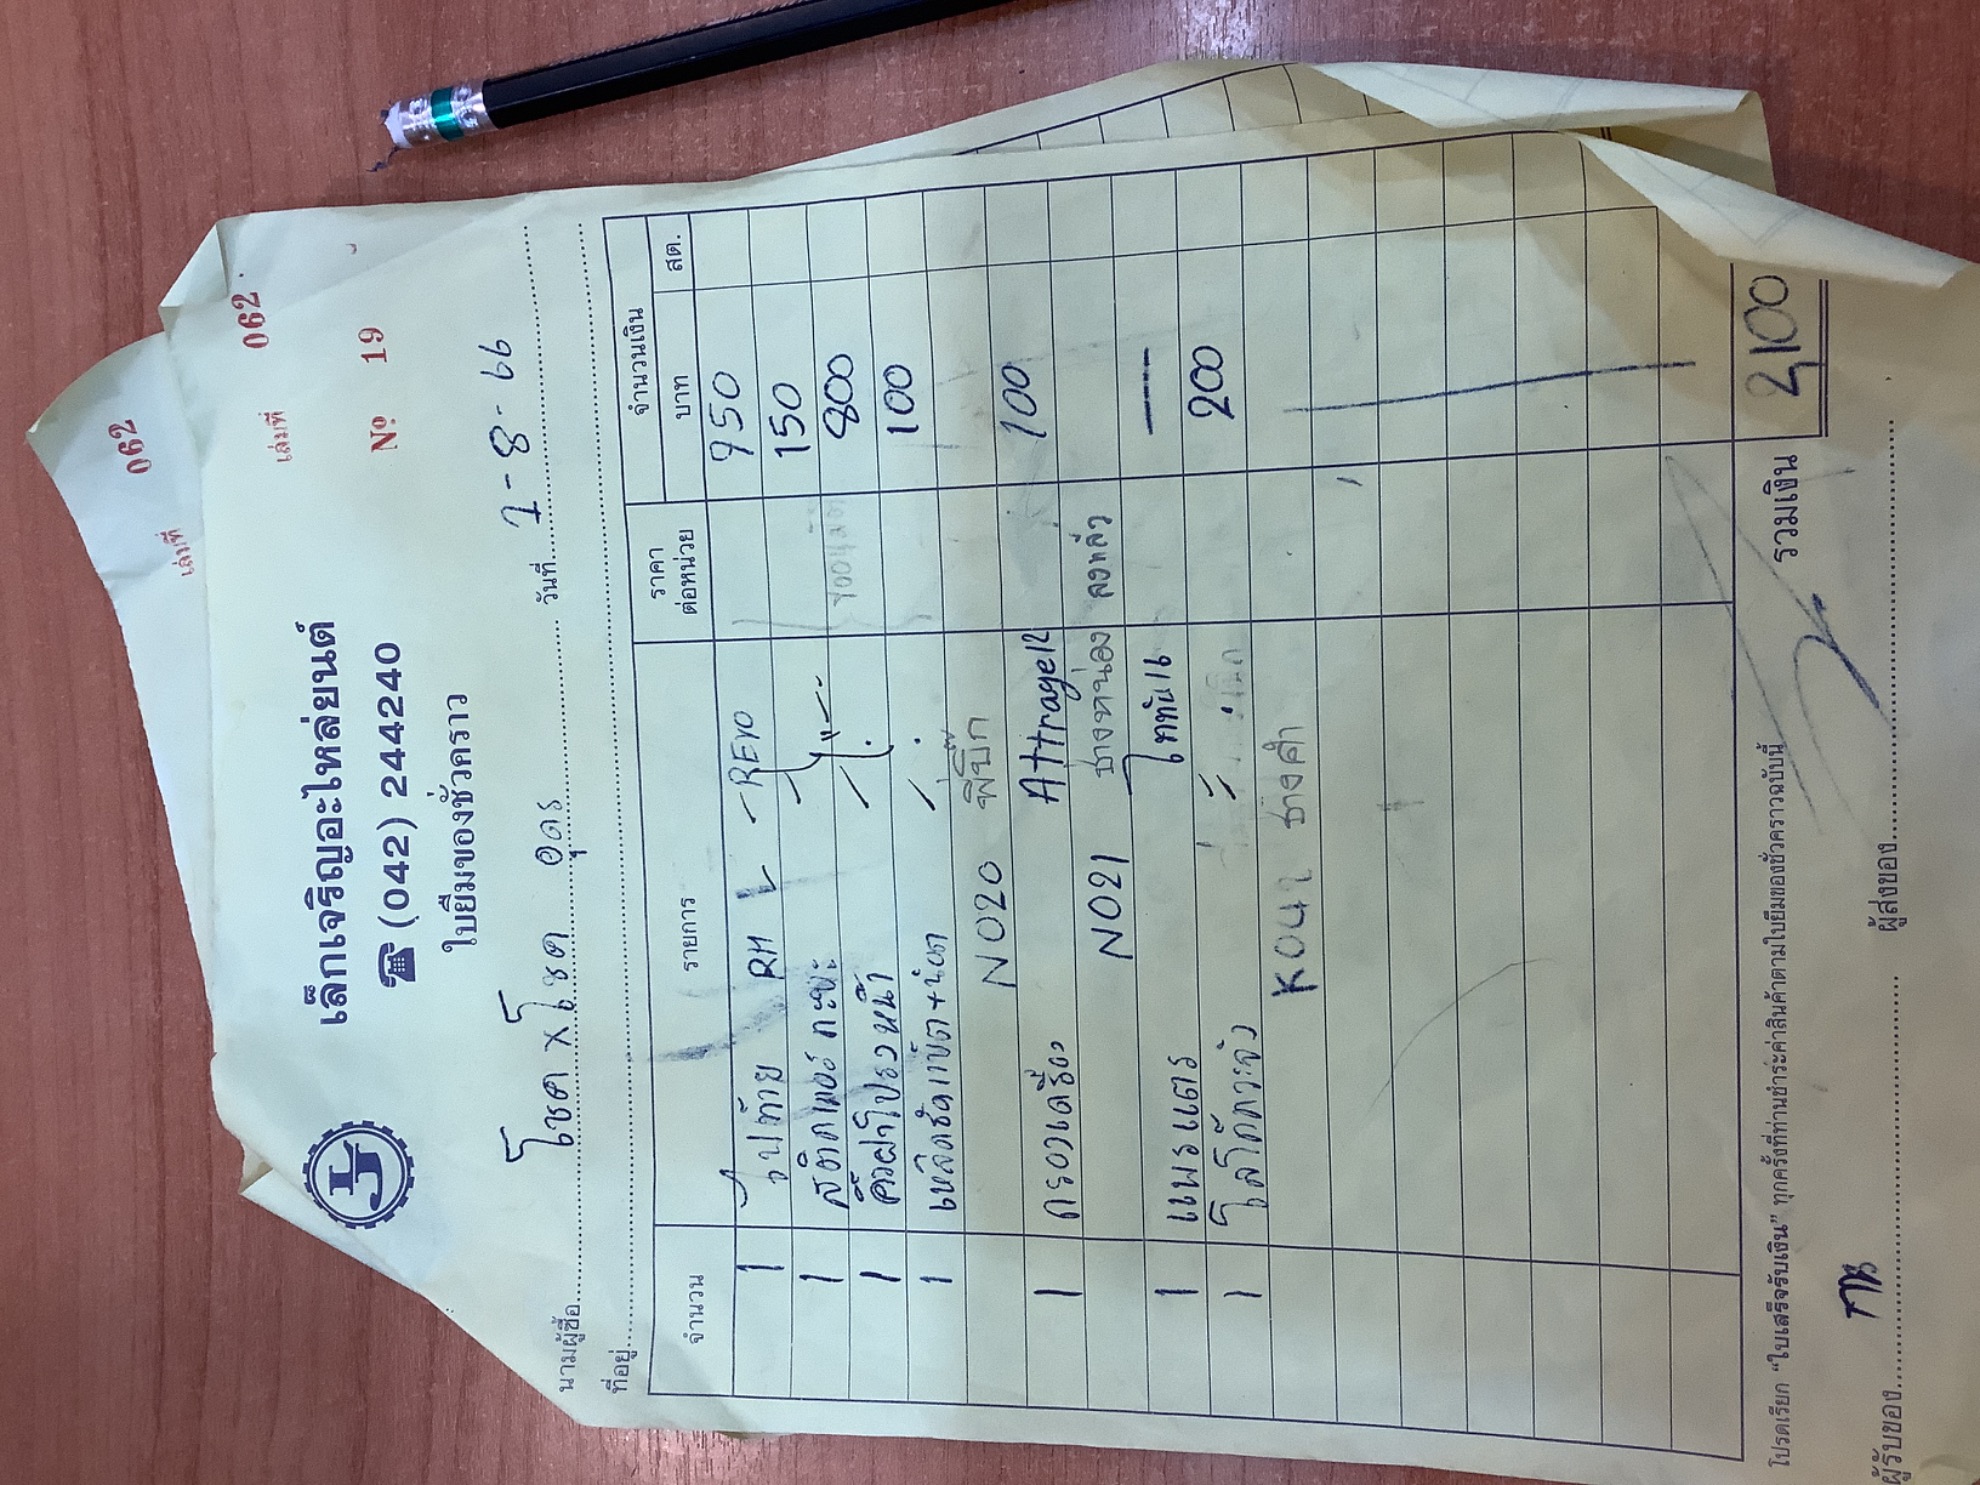 เล่มที่ 062
เล่มที่ 062
เล็กเจริญอะไหล่ยนต์
№ 19
☎ (042) 244240
ใบยืมของชั่วคราว
นามผู้ซื้อ โชค x โชค อุดร วันที่ 7-8-66
ที่อยู่
จำนวน รายการ ราคาต่อหน่วย จำนวนเงิน
บาท สต.
1 งบท้าย RH - REVO 950
1 สติกเกอร์ กะบะ 150
1 คิ้วฝาโปรงหน้า 800
1 + น๊อต 100
NO20 พี่บิ๊ก
1 กรองเครื่อง Attrage12 100
NO21 ช่างหน่อง ลงแล้ว
1 แพรแตร ไททัน16 ----
1 โลโก้ 200
K042 ช่างคำ
รวมเงิน 2,100
โปรดเรียก “ใบเสร็จรับเงิน” ทุกครั้งที่ท่านชำระค่าสินค้าตามใบยืมของชั่วคราวฉบับนี้
ผู้รับของ ผู้ส่งของ